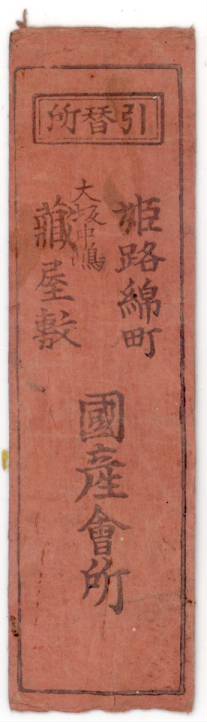 引替所
姫路綿町
大坂中嶋
藏屋敷
國產會所